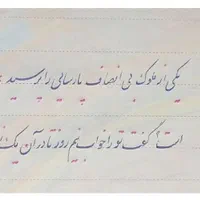 یکی از ملوک بی انصاف پارسایی را پرسید
گفت تو را خواب نیم روز تا در آن یک